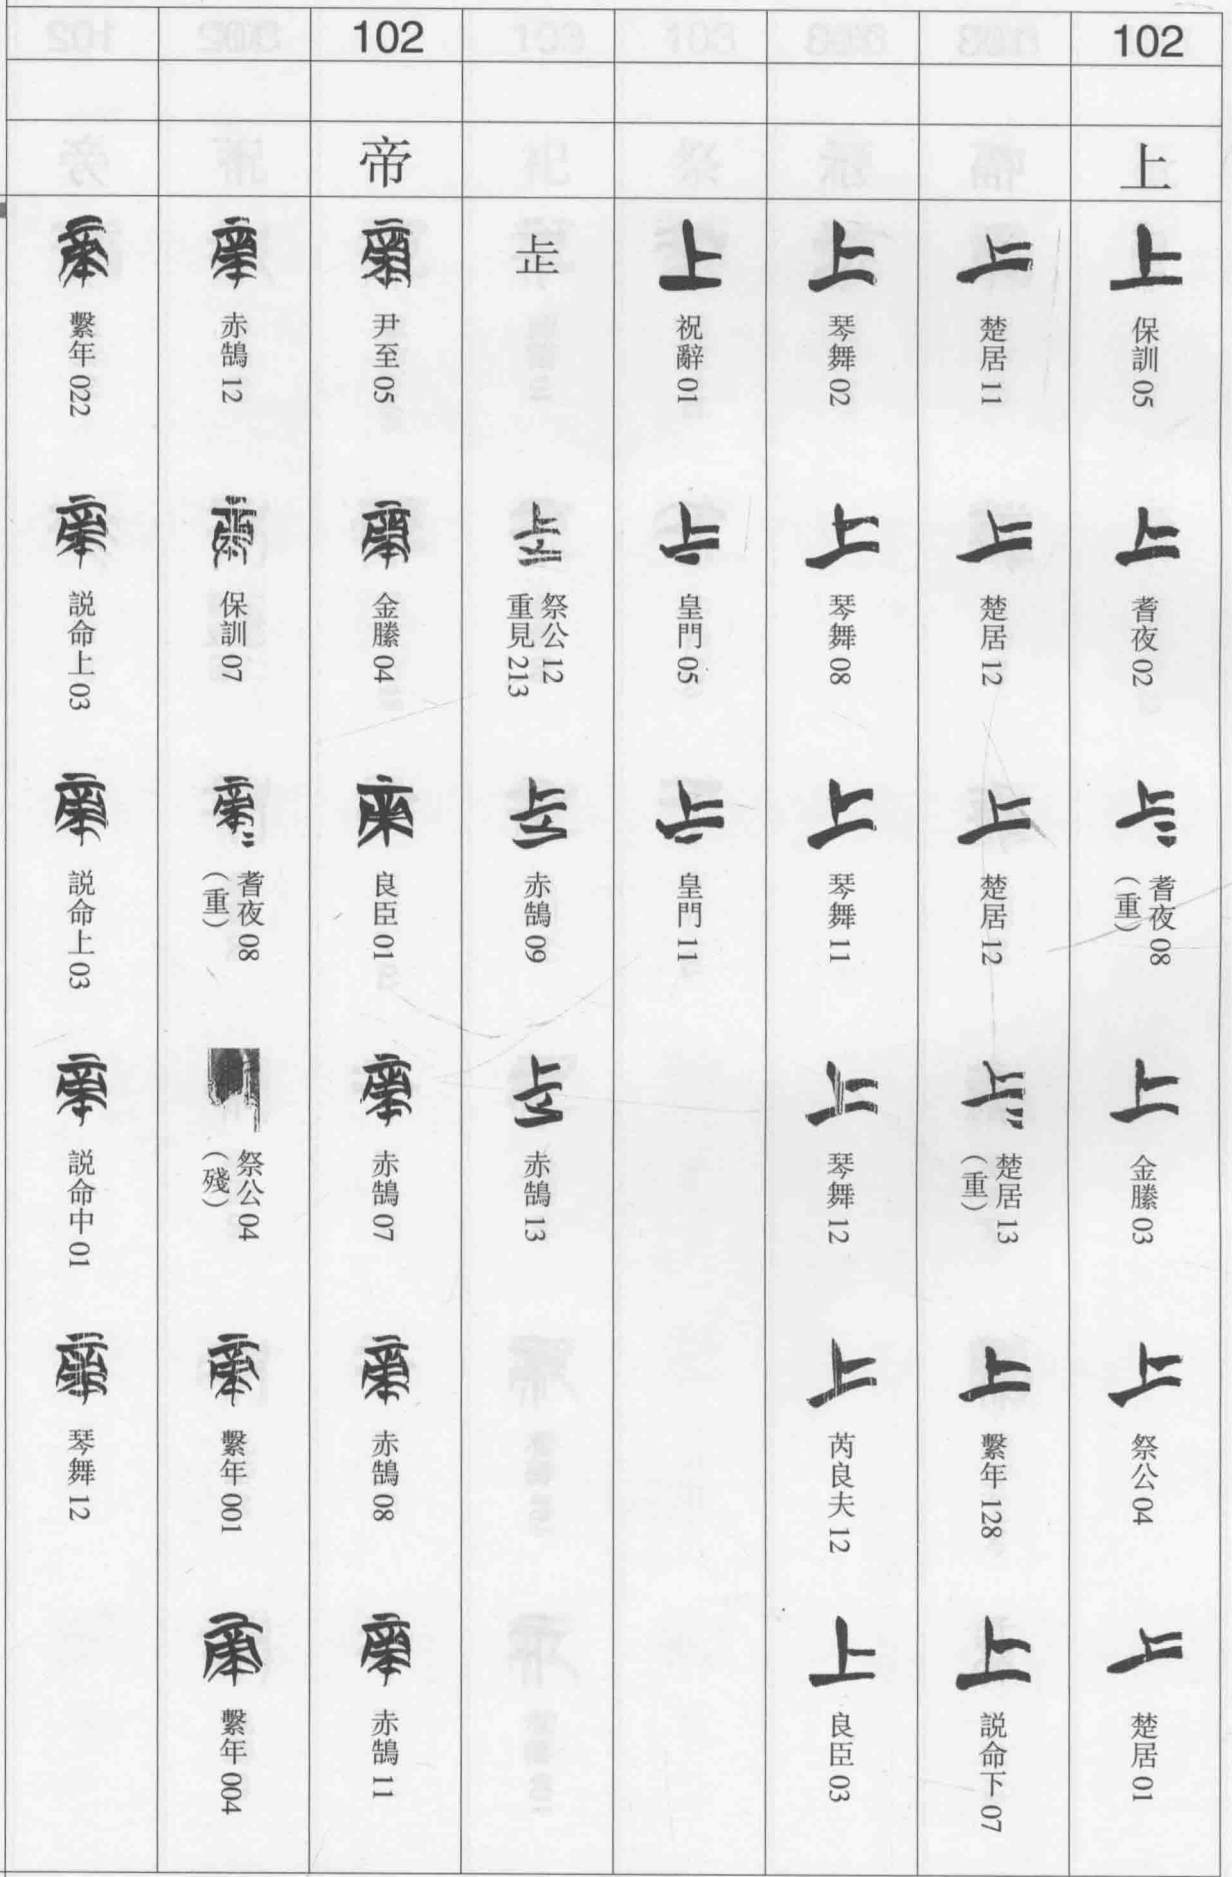 102
上
上
保訓 05
上
耆夜 02
上
耆夜 08
（重）
上
金縢 03
上
祭公 04
上
楚居 01
上
楚居 11
上
楚居 12
上
楚居 12
上
楚居 13
（重）
上
繫年 128
上
説命下 07
上
琴舞 02
上
琴舞 08
上
琴舞 11
上
琴舞 12
上
芮良夫 12
上
良臣 03
上
祝辭 01
上
皇門 05
上
皇門 11
歨
祭公 12
重見 213
赤鵠 09
赤鵠 13
102
帝
帝
尹至 05
帝
金縢 04
帝
良臣 01
帝
赤鵠 07
帝
赤鵠 08
帝
赤鵠 11
帝
赤鵠 12
帝
保訓 07
帝
耆夜 08
（重）
祭公 04
（殘）
帝
繫年 001
帝
繫年 004
帝
繫年 022
帝
説命上 03
帝
説命上 03
帝
説命中 01
帝
琴舞 12